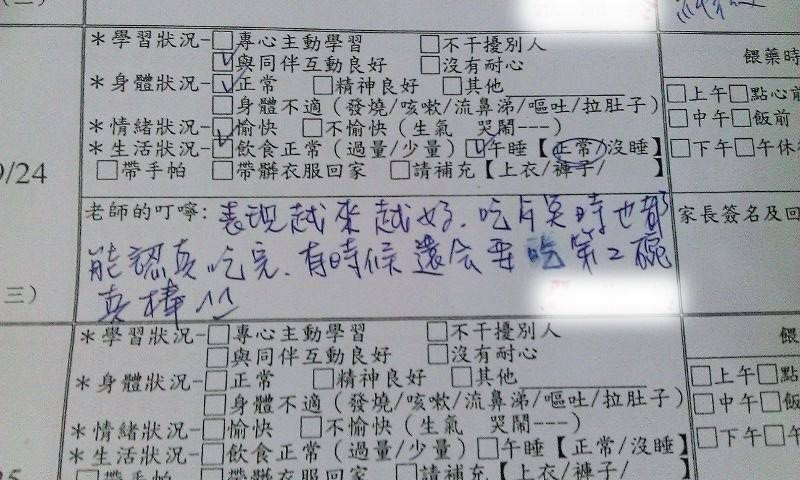 ＊學習狀況-□專心主動學習 □不干擾別人
☑與同伴互動良好 □沒有耐心 餵藥時
＊身體狀況-☑正常 □精神良好 □其他________ □上午□點心前
□身體不適（發燒/咳嗽/流鼻涕/嘔吐/拉肚子） □中午□飯前
＊情緒狀況-☑愉快 □不愉快（生氣 哭鬧---）
＊生活狀況-□飲食正常（過量/少量）☑午睡【正常/沒睡】 □下午□午休
9/24 □帶手帕 □帶髒衣服回家 □請補充【上衣/褲子/ 】
老師的叮嚀：表現越來越好、吃点心時也都 家長簽名及回
能認真吃完、有時候還会要吃第2碗
三） 真棒^^
＊學習狀況-□專心主動學習 □不干擾別人
□與同伴互動良好 □沒有耐心 餵
＊身體狀況-□正常 □精神良好 □其他________ □上午□點
□身體不適（發燒/咳嗽/流鼻涕/嘔吐/拉肚子） □中午□飯
＊情緒狀況-□愉快 □不愉快（生氣 哭鬧---）
＊生活狀況-□飲食正常（過量/少量）□午睡【正常/沒睡】 □下午□午
25 □帶手帕 □帶髒衣服回家 □請補充【上衣/褲子/ 】